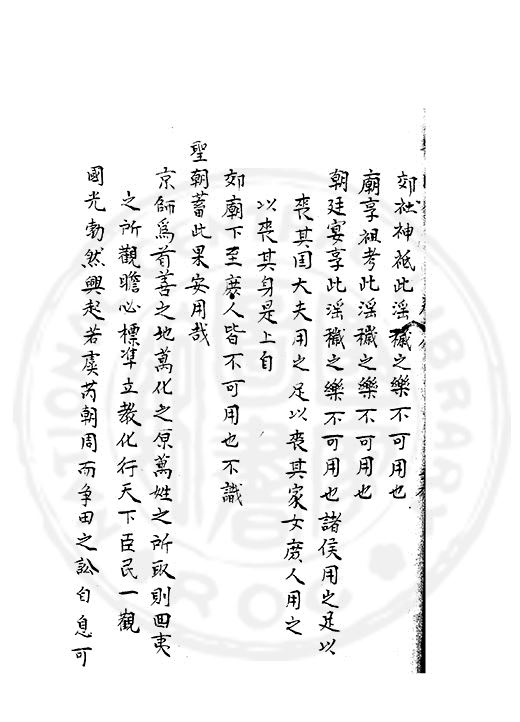 郊社神祗此淫穢之樂不可用也
廟享祖考此淫穢之樂不可用也
朝廷宴享此淫穢之樂不可用也諸侯用之足以
喪其国大夫用之足以喪其家女庶人用之
以喪其身是上自
郊廟下至庶人皆不可用也不識
聖朝蓄此果安用哉
京師爲首善之地萬化之原萬姓之所取則四夷
之所觀瞻必標凖立教化行天下臣民一觀
國光勃然興起若虞芮朝周而争田之訟自息可